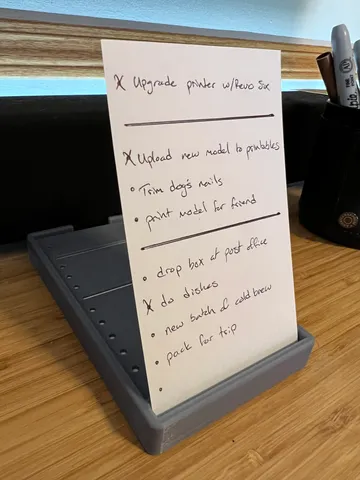 X Upgrade printer w/Revo Six
X Upload new model to printables
• Trim dog's nails
• print model for friend
• drop box at post office
X do dishes
• new batch of cold brew
• pack for trip
•